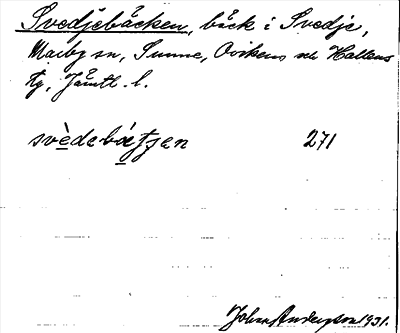 Svedjebäcken, bäck i Svedje,
Marby sn, Sunne, Ovikens och Hallens
tg, Jämtl. l.
svèdebátjen 271
Johan Anderson 1931.